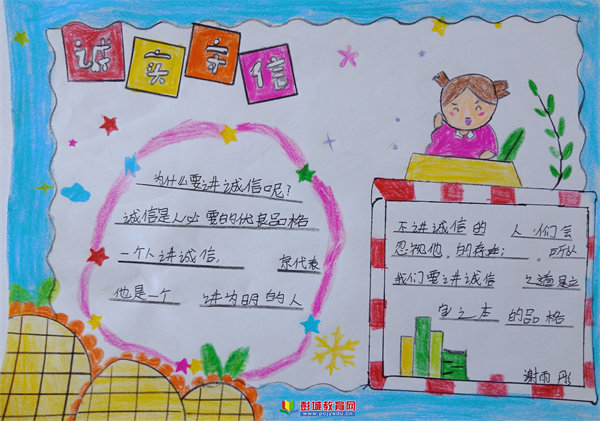 诚实守信
为什么要讲诚信呢?
诚信是人必要的优良品格
一个人讲诚信. 就代表
他是一个 讲文明的人
不讲诚信的 人们会
忽视他.的存在; 所以
我们要讲诚信
的品格
谢雨彤
彭城教育网
www.pcjyedu.cn